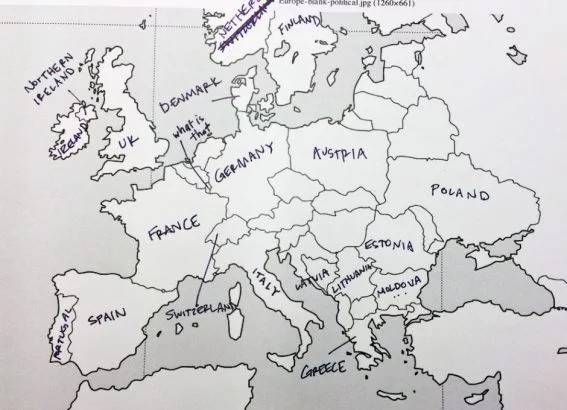 Europe-blank-political.jpg (1260×661)
NETHER
FINLAND
NORTHERN
IRELAND
DENMARK
what is
that
IRELAND
UK
GERMANY
AUSTRIA
POLAND
FRANCE
ESTONIA
ITALY
LATVIA
LITHUANIA
MOLDOVA
...
SWITZERLAND
SPAIN
PORTUGAL
GREECE